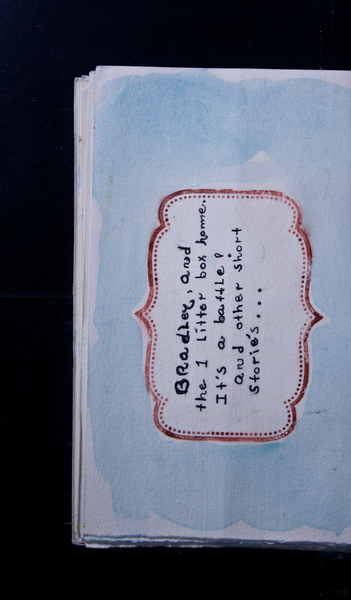 BRadley, and
the 1 Litter box home.
It's a battle!
and other short
storie's...